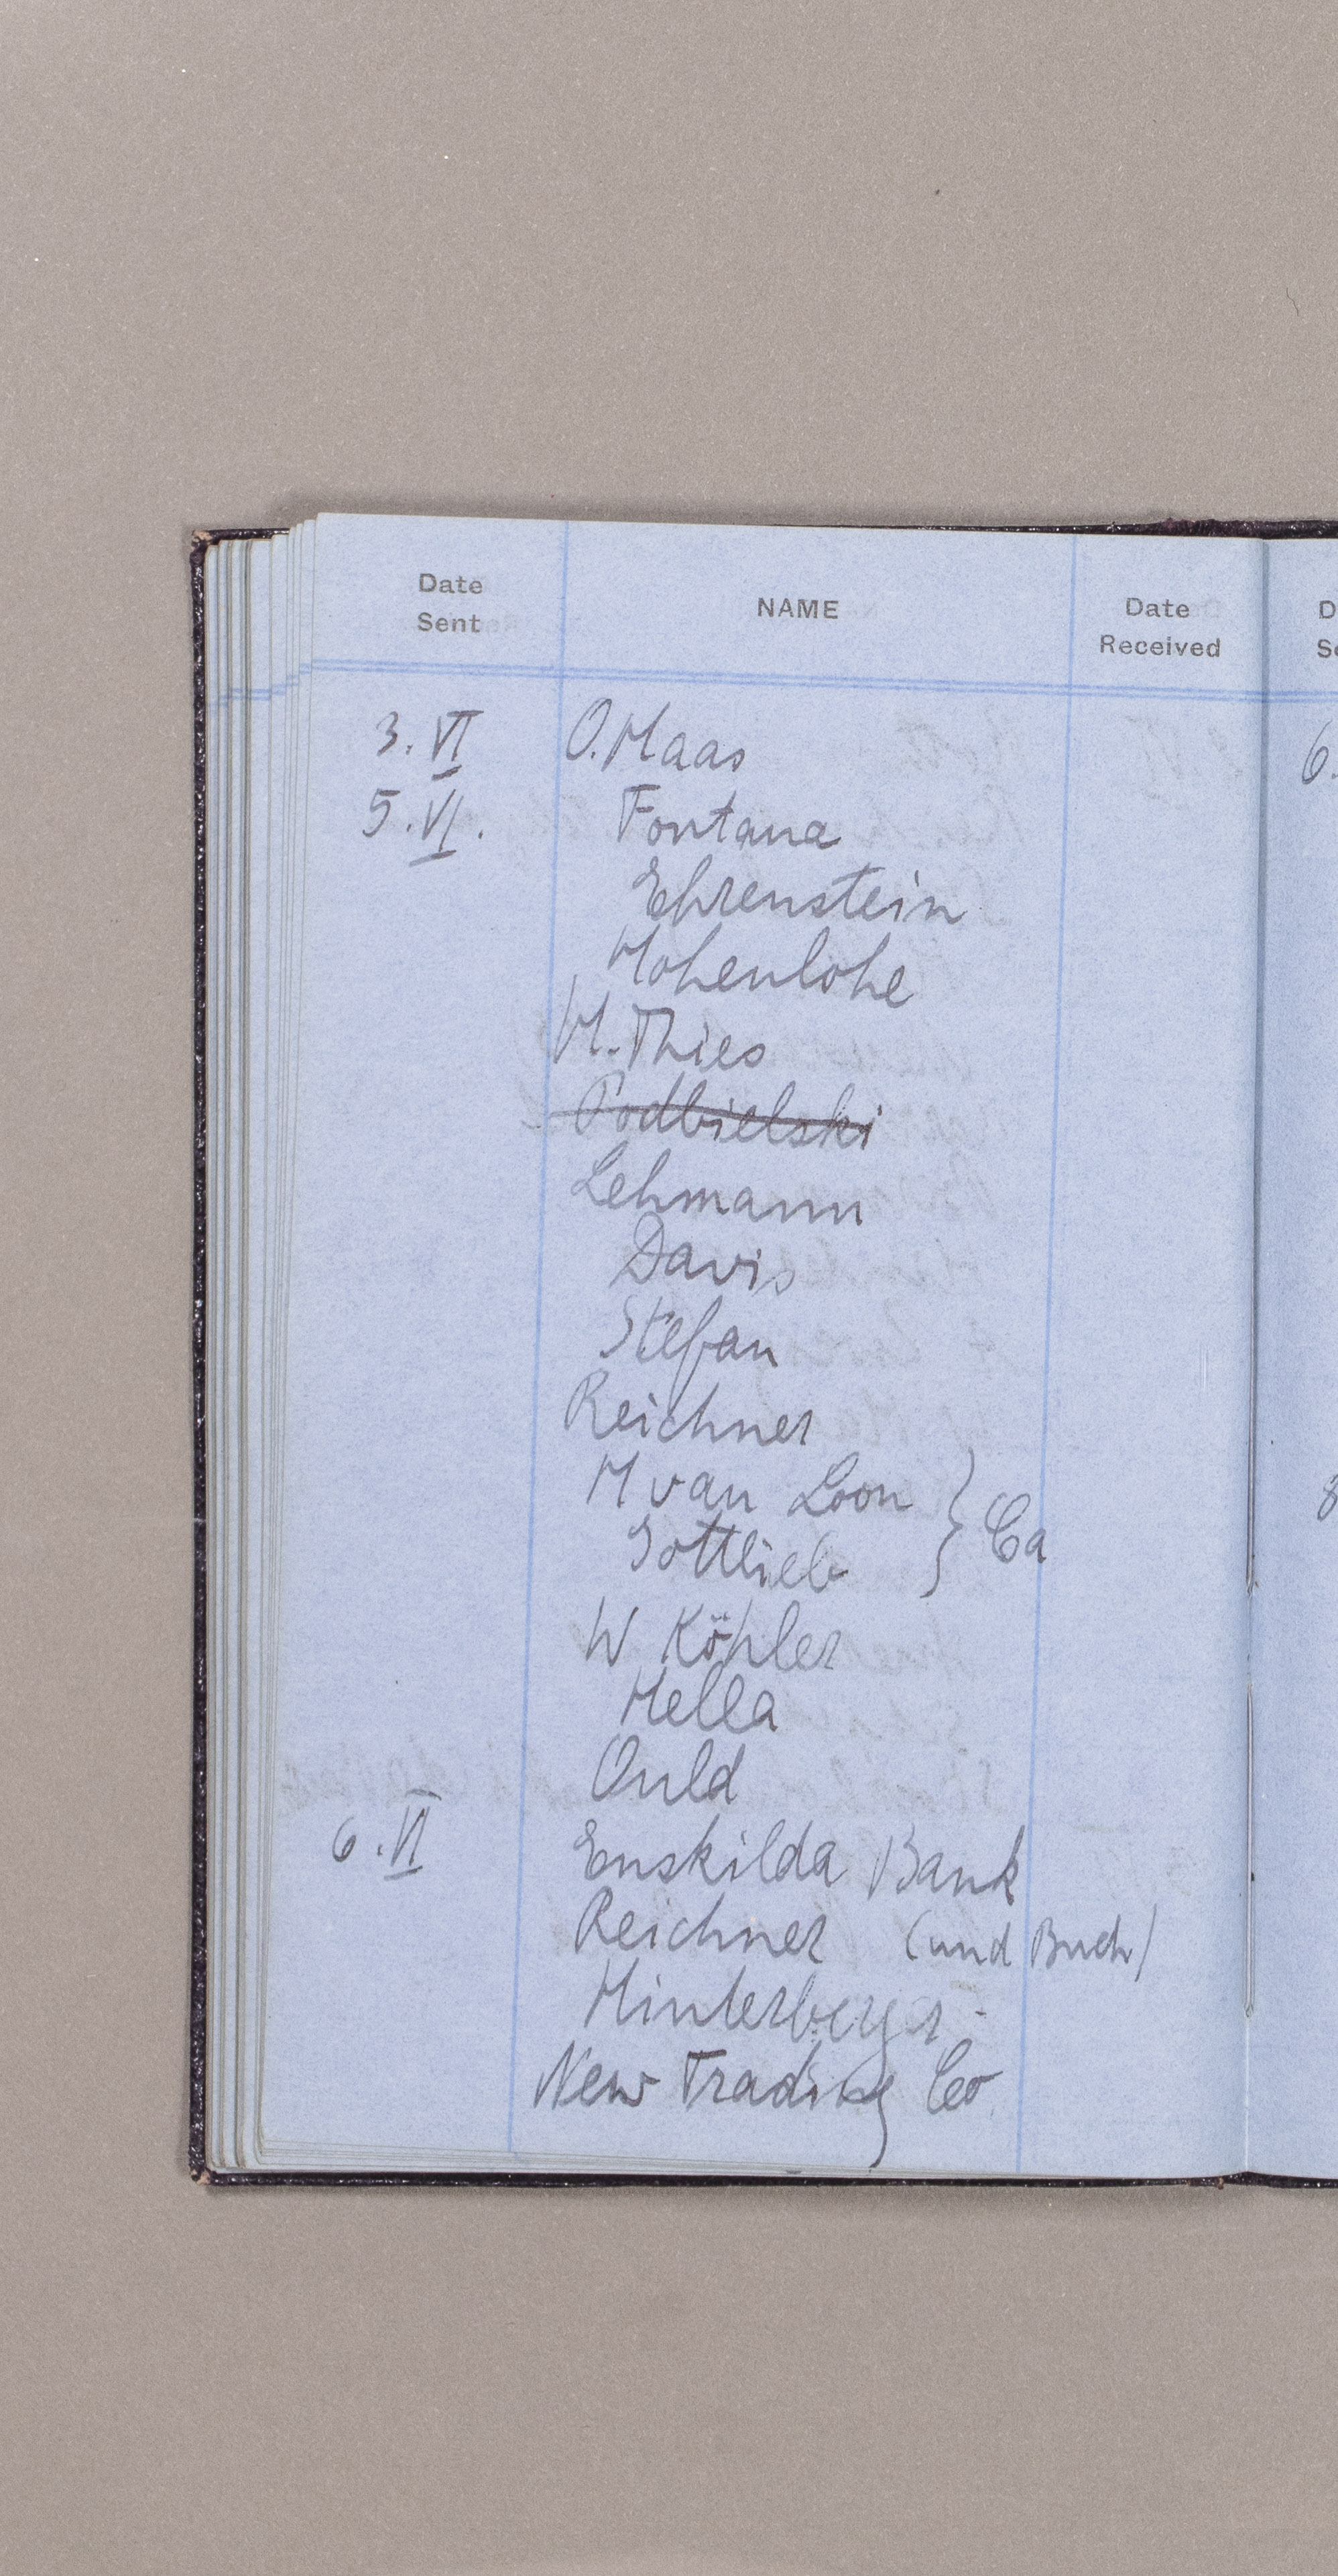 Date Sent NAME Date Received
3. VI O. Maas
5. VI. Fontana
Ehrenstein
Hohenlohe
H. Thies
Podbielski
Lehmann
Davis
Stefan
Reichner
H van Loon } Ca
Gottlieb
W Köhler
Hella
Ould
6. VI Enskilda Bank
Reichner (und Buch)
Hinterberger
New Trading Co